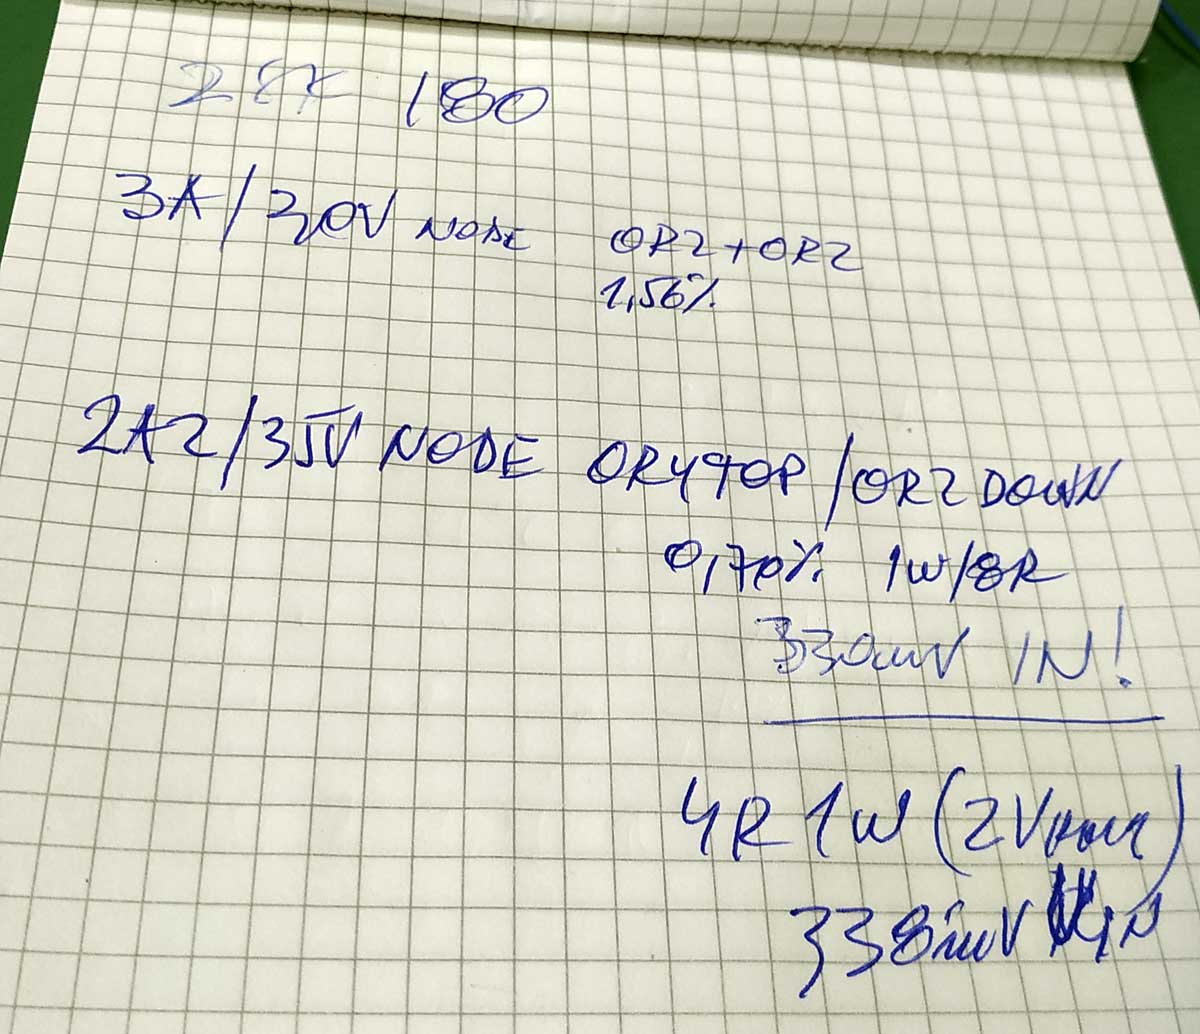 180
3A/30V NODE 0R2+0R2
1,56%
2A2/35V NODE 0R4TOP/0R2DOWN
0,70% 1W/8R
330mV IN!
4R 1W (2VRMS)
338mV IN